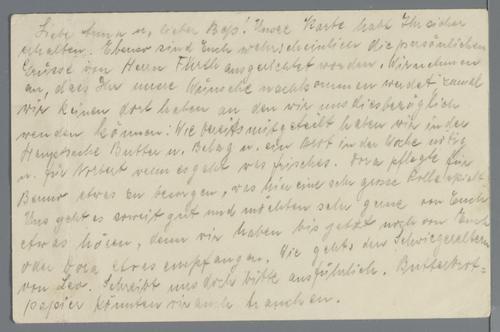 Liebe Anna u. lieber Bap! Unsre Karte habt Ihr sicher
erhalten. Ebenso sind Euch wahrscheinlich die persönlichen
Grüsse von Herrn Fürth ausgerichtet worden. Wir nehmen
an, dass Ihr unsre Wünsche nachkommen werdet zumal
wir keinen dort haben an den wir uns diesbezüglich
wenden können. Wie bereits mitgeteilt haben wir in der
Hauptsache Butter u. Belag u. ein Brot in der Woche nötig
u. für Norbert wenn es geht was frisches. Dora pflegte für
Benno etwas zu besorgen, was hier eine sehr grosse Rolle spielt.
Uns geht es soweit gut und möchten sehr gerne von Euch
etwas hören, denn wir haben bis jetzt noch von Euch
oder Dora etwas empfangen. Wie geht's den Schwiegereltern
von Leo. Schreibt uns doch bitte ausführlich. Butterbrot=
papier könnten wir auch brauchen.